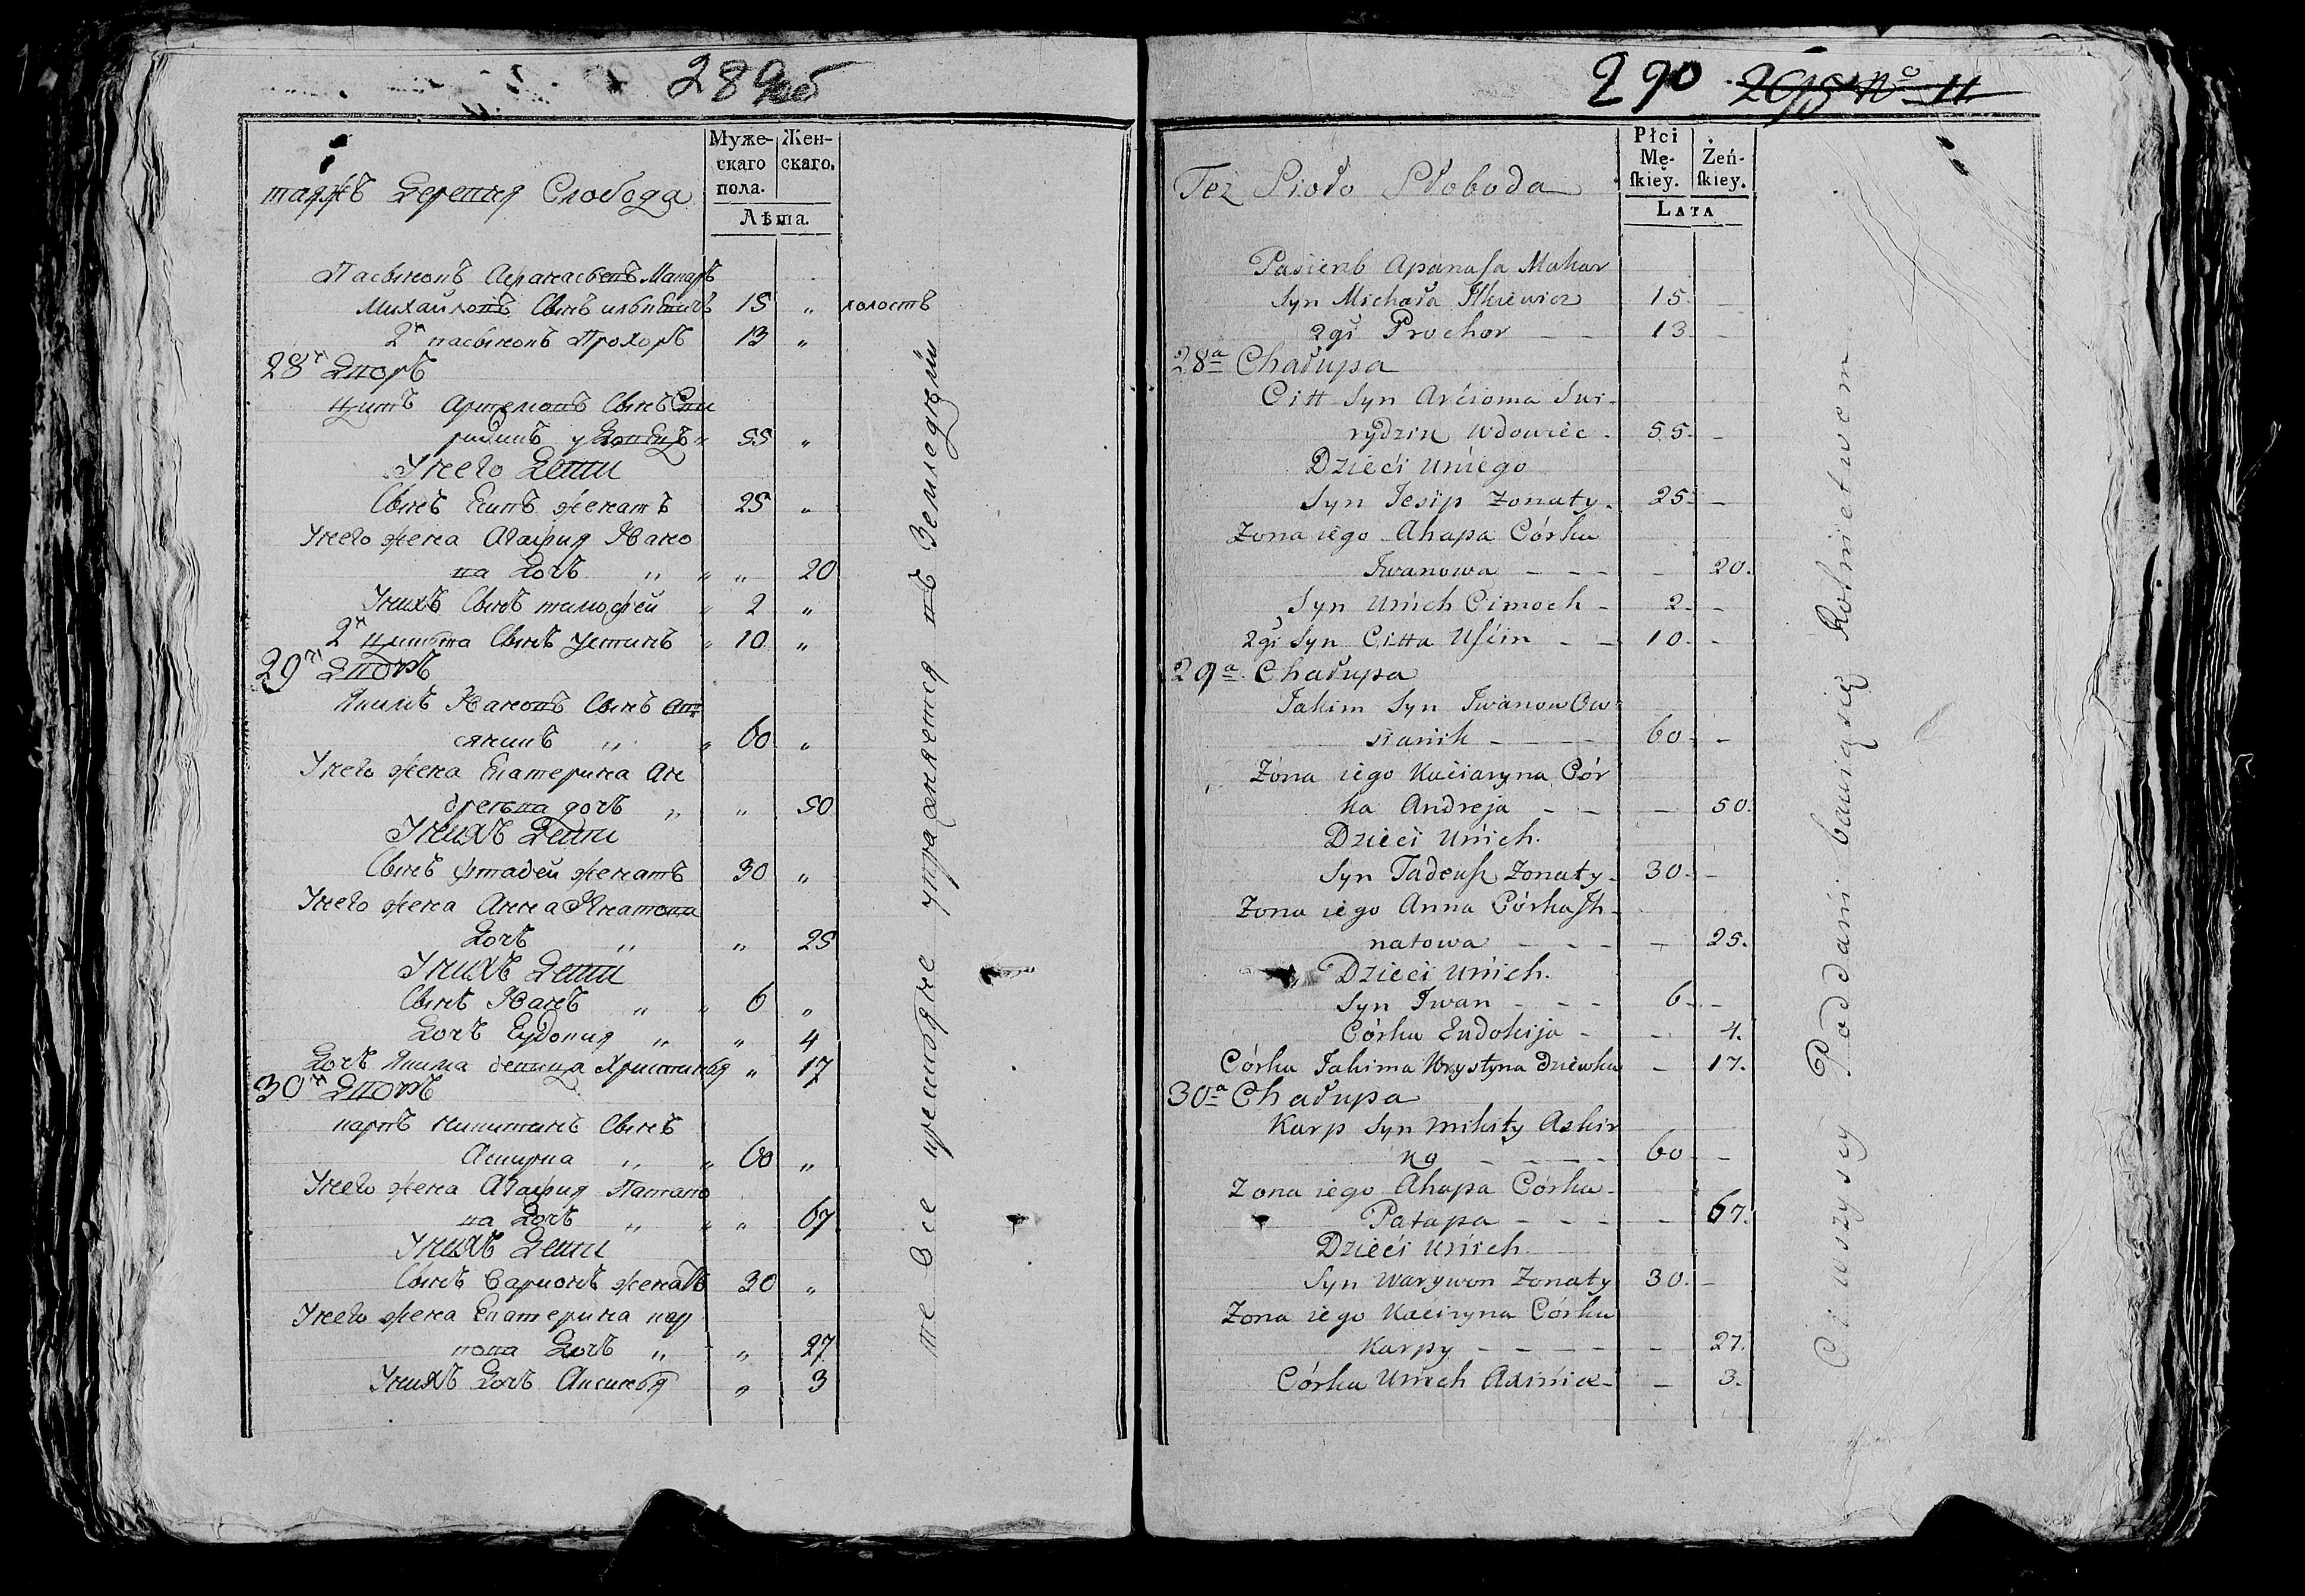 289 об
Муже-
скаго
пола.
Жен-
скаго.
Лѣта.
таяжъ Деревня Слобода
Пасынокъ Афанасьевъ Макаръ
Михайловъ Сынъ илькевичъ 15 " холостъ
2й пасынокъ Прохоръ 13 "
28й Дворъ
цитъ Артемовъ Сынъ Сви
ридинъ удовецъ " 55 "
У него Дети
Сынъ Есипъ женатъ 25 "
У него жена Агафия Ивано
ва Дочь " " " 20
У нихъ Сынъ тимофей " 2 "
2й цитта Сынъ Устинъ " 10 "
29й Дворъ
Якимъ Ивановъ Сынъ Ав
сяникъ " " 60 "
У него жена Екатерина Ан
дреевна дочь " " 50
У нихъ Дети
Сынъ фтадей женатъ 30 "
У него жена Анна Игнатова
Дочь " " 25
У нихъ Дети
Сынъ Иванъ " " 6 "
Дочь Еудокия " " 4
Дочь Якима девица Христинья " 17
30й Дворъ
карпъ Никитинъ Сынъ
Аскирка " " 60 "
У него жена Агафия Патапо
ва Дочь " " " 67
У нихъ Дети
Сынъ Варионъ женатъ 30 "
У него жена Екатерина кар
пова Дочь " " 27
У нихъ Дочь Аксинья " 3
те все крестьяне упражняется въ Земледелии
290 295 No 11
Płci
Mę-
ſkiey.
Żeń-
ſkiey.
LATA
Też Sioło Słoboda
Pasierb Apanaſa Makar
Syn Michała Ilkiewicz 15 -
2gi Prochor - - 13 -
28a Chałupa
Citt Syn Arcioma Swi-
rydzin Wdowiec - 55 -
Dzieci Uniego
Syn Jesip Zonaty - 25 -
Zona iego Ahapa Córka
Iwanowa - - - - 20.
Syn Unich Cimoch - 2 -
2gi Syn Citta Uſcin - - 10 -
29a Chałupa
Jakim Syn Iwanow Ow-
sianik - - - - 60 -
Zona iego Kaciaryna Cór
ka Andreja - - - 50.
Dzieci Unich.
Syn Tadeuſz Zonaty - 30 -
Zona iego Anna Córka Ih-
natowa - - - - 25.
Dzieci Unich.
Syn Iwan - - - 6 -
Córka Eudokija - - 4.
Córka Jakima Krystyna dziewka - 17.
30a Chałupa
Karp Syn Mikity Askir
ka - - - - 60 -
Zona iego Ahapa Córka -
Patapa - - - - 67.
Dzieci Unich
Syn Warywon Zonaty 30 -
Zona iego Kaciryna Córka
Karpy - - - - - 27.
Córka Unich Axinia - - 3.
Ci wszyscy Poddani bawią się Rolnictwem